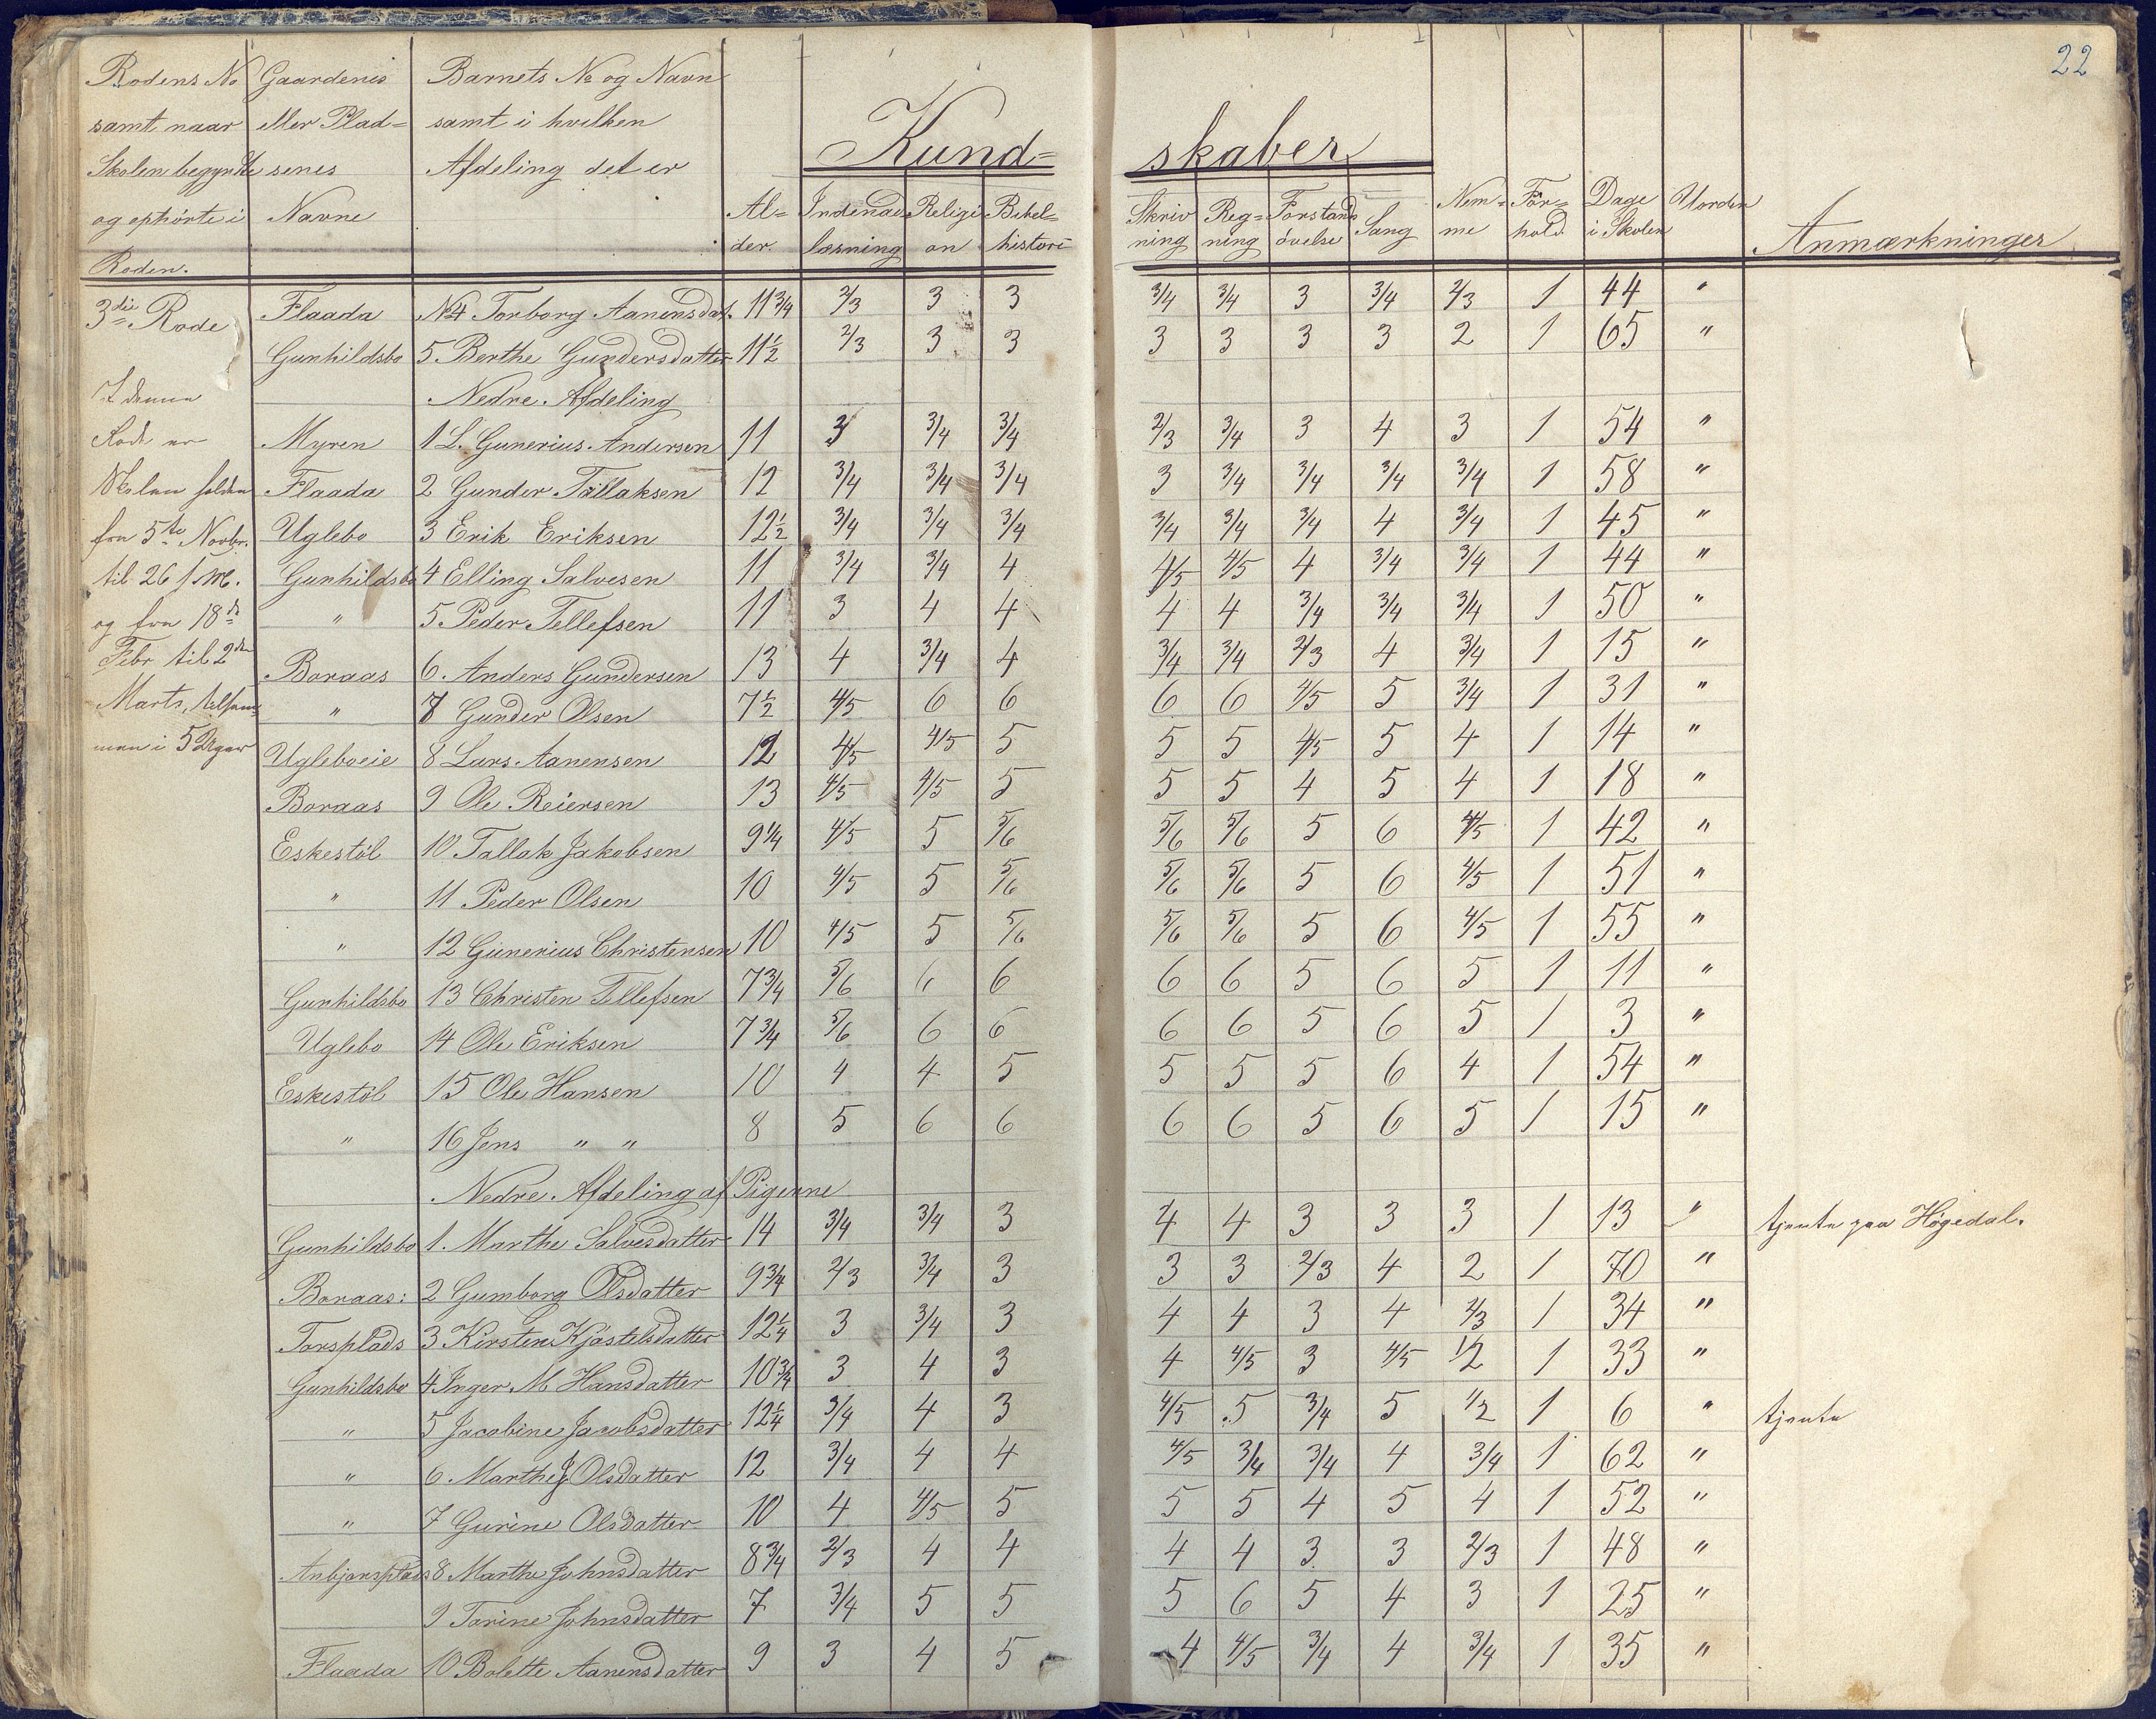 22
Rodens No Gaardenes Barnets No og Navn
samt naar eller Plad= samt i hvilken
Skolen begyndte senes Afdeling det er
og ophørte i Navne
Roden.
Kund= skaber
Al= Indenad Religi Bibel= Skriv Reg= Forstands Sang Nem= For= Dage Uorden
der. læsning on histori ning ning øvelse me hold i Skolen Anmærkninger
3die Rode Flaada No4 Torborg Aanensdat. 11 3/4 2/3 3 3 3/4 3/4 3 3/4 2/3 1 44 "
Gunhildsbo 5 Berthe Gundersdatter 11 1/2 2/3 3 3 3 3 3 3 2 1 65 "
I denne Nedre Afdeling
Rode er Myren 1 L. Gunerius Andersen 11 3 3/4 3/4 2/3 3/4 3 4 3 1 54 "
Skolen holden Flaada 2 Gunder Tallaksen 12 3/4 3/4 3/4 3 3/4 3/4 3/4 3/4 1 58 "
fra 5te Novbr. Uglebo 3 Erik Eriksen 12 1/2 3/4 3/4 3/4 3/4 3/4 3/4 4 3/4 1 45 "
til 26 s. M. Gunhildsbo 4 Elling Salvesen 11 3/4 3/4 4 4/5 4/5 4 3/4 3/4 1 44 "
og fra 18de " 5 Peder Tellefsen 11 3 4 4 4 4 3/4 3/4 3/4 1 50 "
Febr til 2den Boraas 6. Anders Gundersen 13 4 3/4 4 3/4 3/4 2/3 4 3/4 1 15 "
Marts, tilsam= " 7 Gunder Olsen 7 1/2 4/5 6 6 6 6 4/5 5 3/4 1 31 "
men i 5 Uger Ugleboeie 8 Lars Aanensen 12 4/5 4/5 5 5 5 4/5 5 4 1 14 "
Boraas 9 Ole Reiersen 13 4/5 4/5 5 5 5 4 5 4 1 18 "
Eskestöl 10 Tallak Jakobsen 9 1/4 4/5 5 5/6 5/6 5/6 5 6 4/5 1 42 "
" 11 Peder Olsen 10 4/5 5 5/6 5/6 5/6 5 6 4/5 1 51 "
" 12 Gunerius Christensen 10 4/5 5 5/6 5/6 5/6 5 6 4/5 1 55 "
Gunhildsbo 13 Christen Tellefsen 7 3/4 5/6 6 6 6 6 5 6 5 1 11 "
Uglebo 14 Ole Eriksen 7 3/4 5/6 6 6 6 6 5 6 5 1 3 "
Eskestöl 15 Ole Hansen 10 4 4 5 5 5 5 6 4 1 54 "
" 16 Jens " " 8 5 6 6 6 6 5 6 5 1 15 "
Nedre Afdeling af Pigerne
Gunhildsbo 1. Marthe Salvesdatter 14 3/4 3/4 3 4 4 3 3 3 1 13 " tjente paa Högedal.
Boraas: 2 Gumborg Olsdatter 9 3/4 2/3 3/4 3 3 3 2/3 4 2 1 70 "
Torsplads 3 Kirsten Kjöstelsdatter 12 1/4 3 3/4 3 4 4 3 4 2/3 1 34 "
Gunhildsbo 4 Inger M Hansdatter 10 3/4 3 4 3 4 4/5 3 4/5 1/2 1 33 "
" 5 Jacobine Jacobsdatter 12 1/4 3/4 4 3 4/5 5 3/4 5 1/2 1 6 " tjente
" 6. Marthe J Olsdatter 12 3/4 4 4 4/5 3/4 3/4 4 3/4 1 62 "
" 7 Gurine Olsdatter 10 4 4/5 5 5 5 4 5 4 1 52 "
Anbjønsplads 8 Marthe Johnsdatter 8 3/4 2/3 4 4 4 4 3 3 2/3 1 48 "
9 Torine Johnsdatter 7 3/4 5 5 5 6 5 4 3 1 25 "
Flaada 10 Bolette Aanensdatter 9 3 4 5 4 4/5 3/4 4 3/4 1 35 "